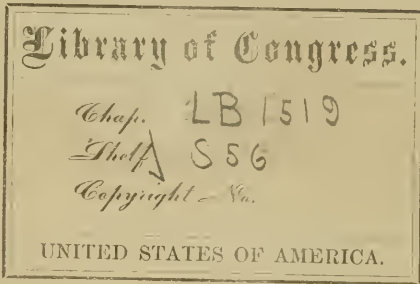 Library of Congress.
Chap. LB 1519
Shelf S56
Copyright No.
UNITED STATES OF AMERICA.